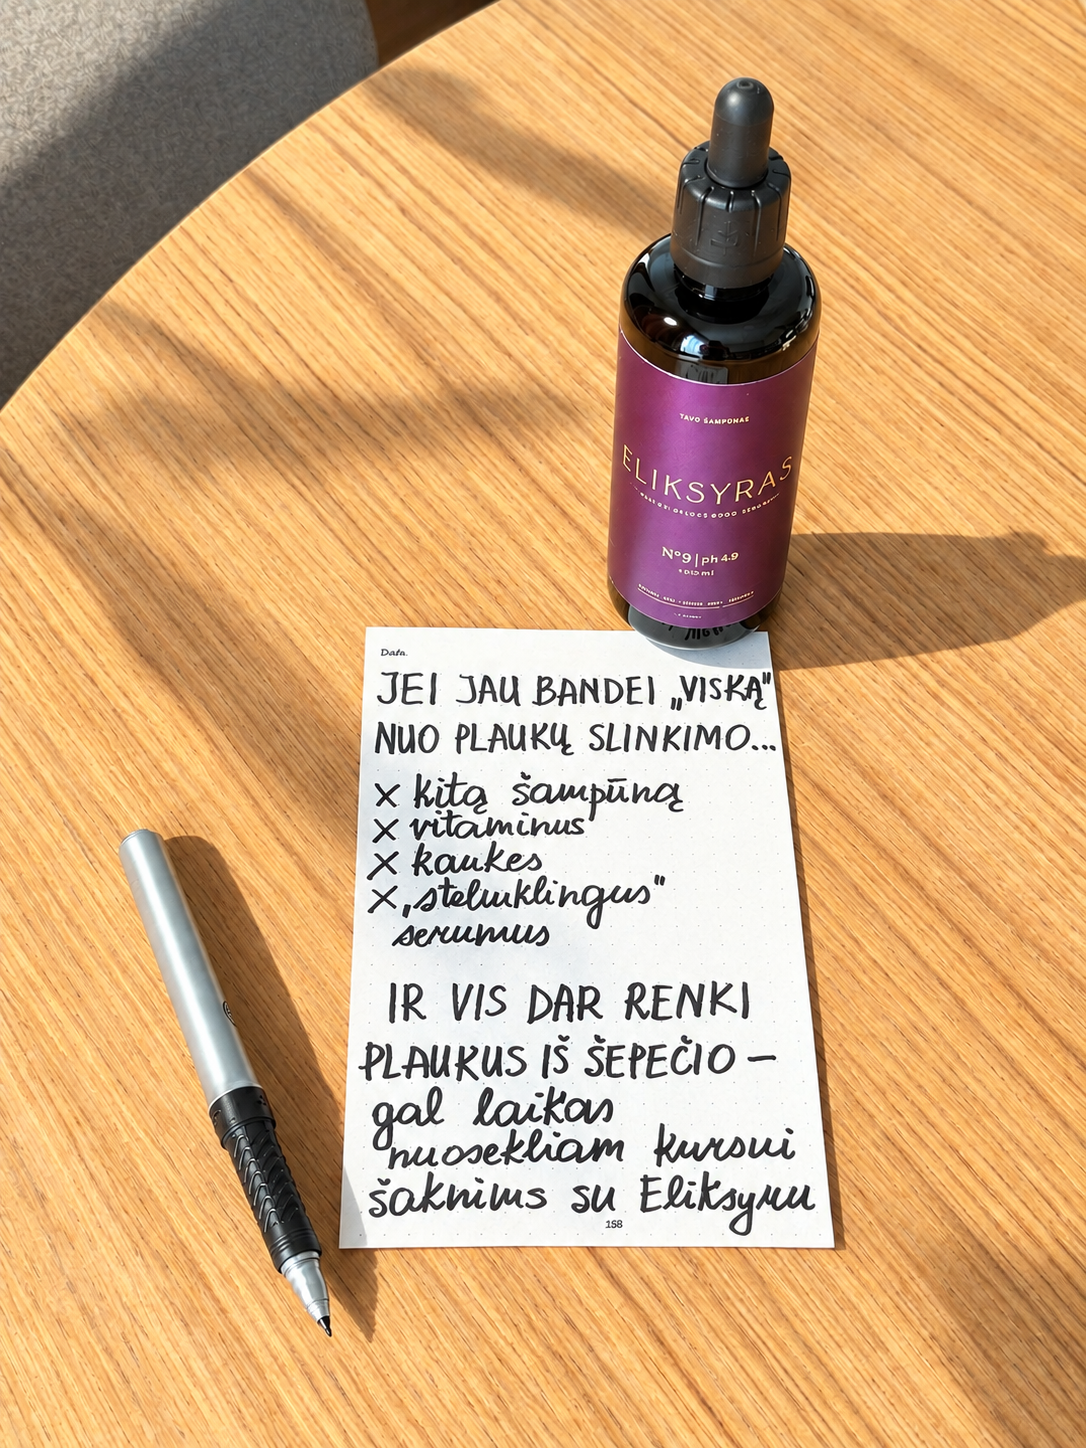 TAVO ŠAMPONAS
ELIKSYRAS
Nº9 | ph 4.9
Data.
JEI JAU BANDEI „VISKĄ"
NUO PLAUKŲ SLINKIMO...
× kitą šampūną
× vitaminus
× kaukes
× „stebuklingus"
serumus
IR VIS DAR RENKI
PLAUKUS IŠ ŠEPEČIO –
gal laikas
nuosekliam kursui
šaknims su Eliksyru
158